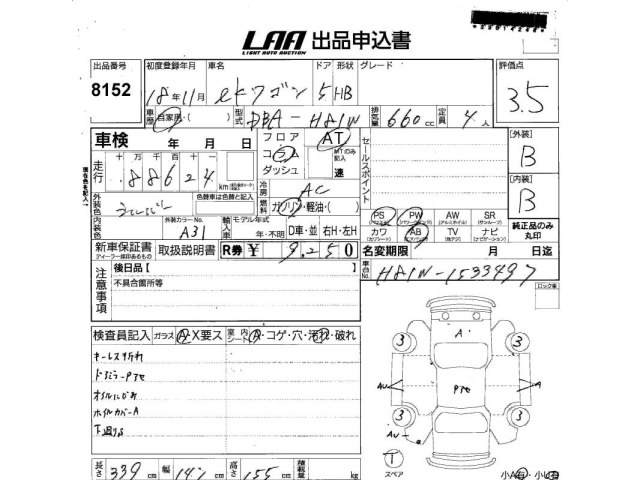 LAA 出品申込書
LIGHT AUTO AUCTION
出品番号 初度登録年月 車名 ドア 形状 グレード 評価点
8152 18年11月 ekワゴン 5 HB 3.5
車歴 自家用・( ) 型式 DBA-H81W 排気量 660cc 定員 4人
車検 年 月 日 フロア AT
コラム MTのみ記入
ダッシュ 速
走行 十万千百十
88624 km
冷房 AC
燃料 ガソリン・軽油・( )
セールスポイント
[外装]
B
[内装]
B
外装色 シルバー 色替車は色替と記入
外装カラーNo. A31
輸入車 モデル年式 年・不明 D車・並 右H・左H
PS PW AW SR
(パワステ) (パワーウインドウ) (アルミホイル) (サンルーフ)
カワ AB TV ナビ
(カワシート) (エアバッグ) (テレビ) (ナビゲーション)
純正品のみ丸印
新車保証書 取扱説明書 R券 ¥ 9,250
名変期限 月 日迄
車台No. H81W-1533497
注意事項
後日品【 】
不具合箇所等
ロック車
検査員記入 ガラス A・X要ス 室内シート A・コゲ・穴・汚れ・破れ
キーレス切れ
ドライバーPTセ
オイルにじみ
ホイルカバーA
下廻りS
A
3 3
AU PTセ A
3 3
AU
1
スペア
長さ 339cm 幅 147cm 高さ 155cm 積載量 kg
小A 小U